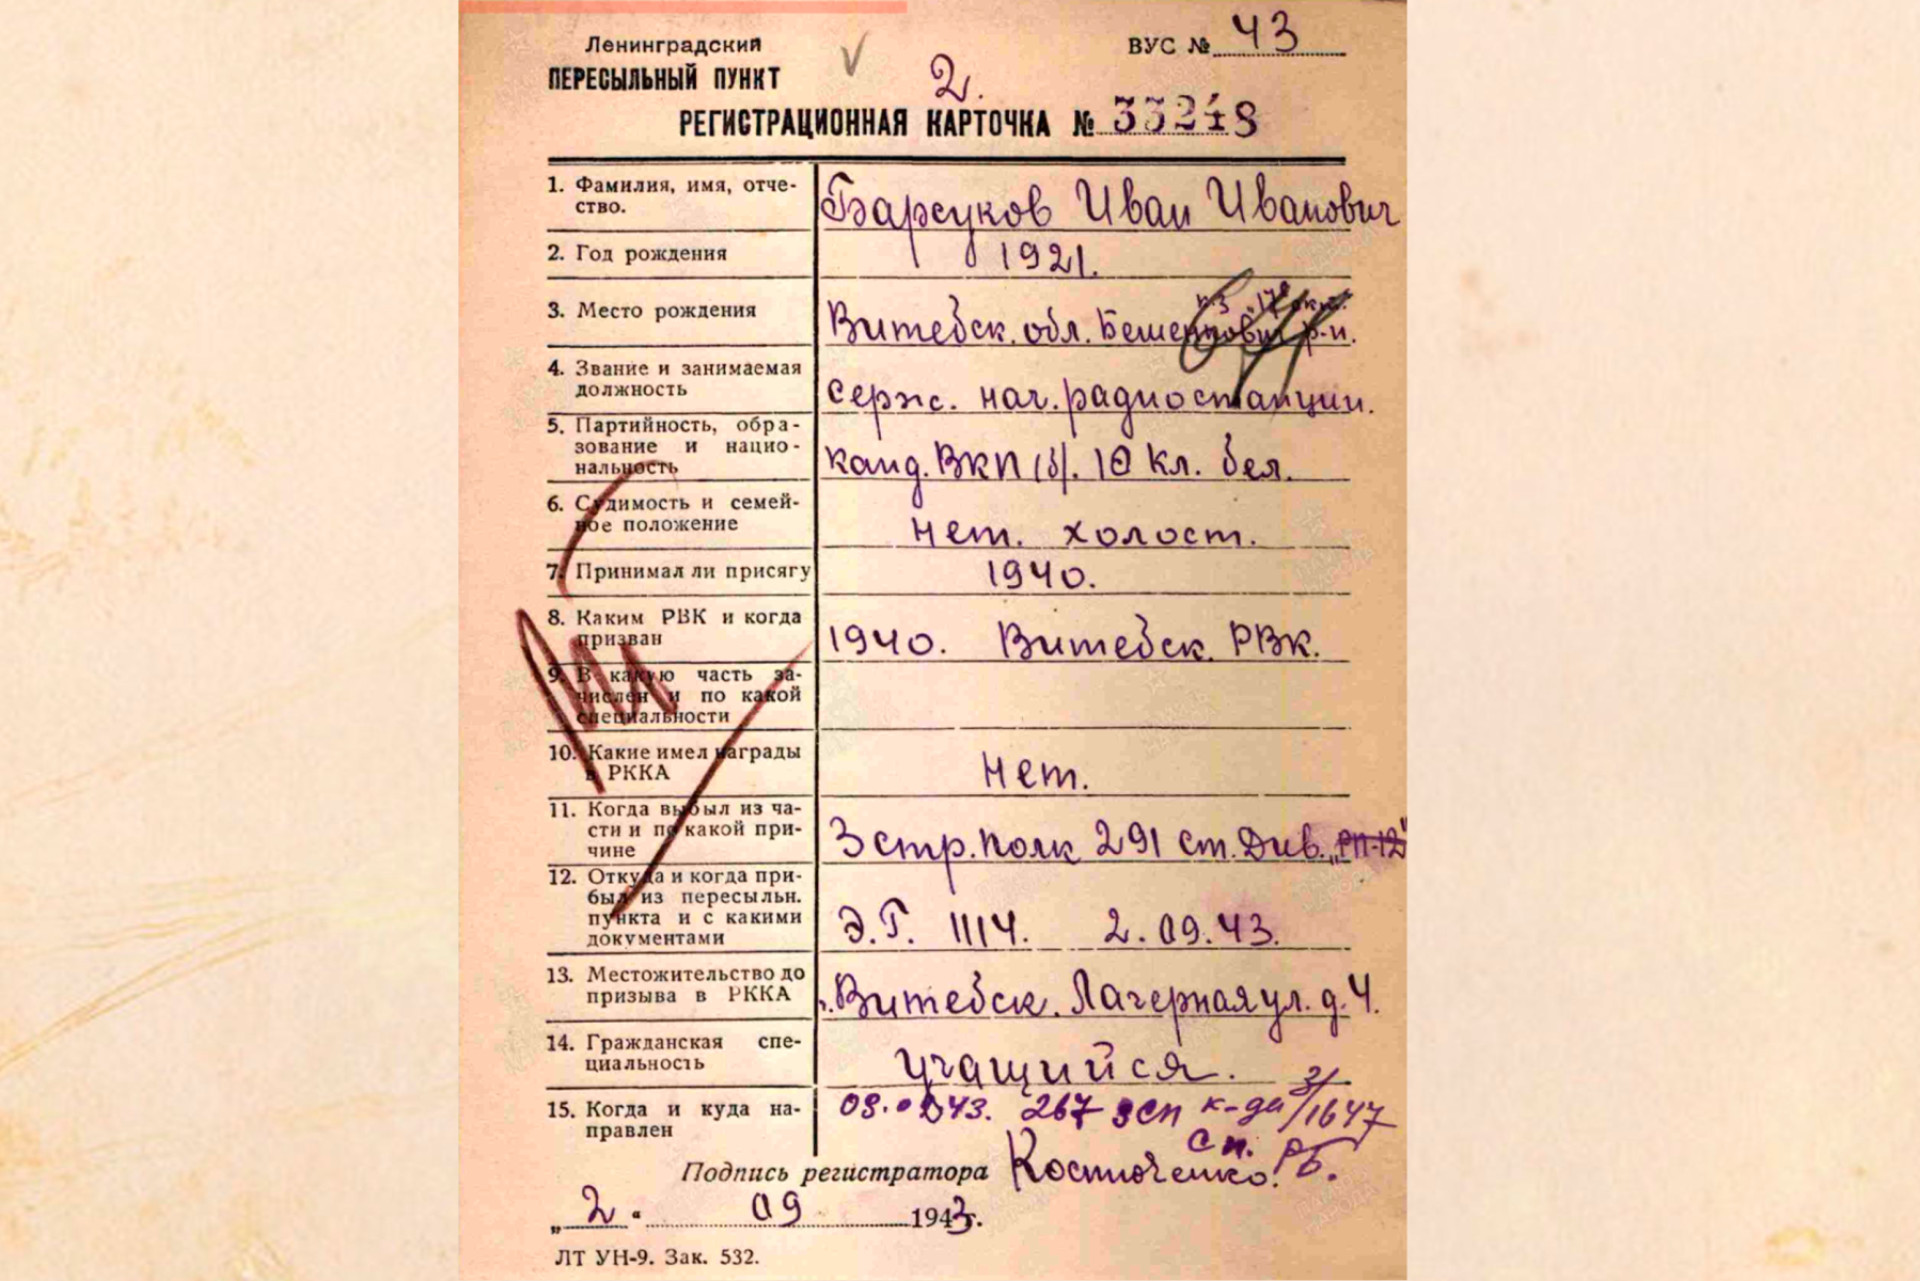 Ленинградский
ПЕРЕСЫЛЬНЫЙ ПУНКТ
ВУС № 43
2.
РЕГИСТРАЦИОННАЯ КАРТОЧКА № 33248
1. Фамилия, имя, отче-
ство.
Барсуков Иван Иванович
2. Год рождения
1921.
3. Место рождения
Витебск. обл. Бешенкович р-н.
4. Звание и занимаемая
должность
Серж. нач. радиостанции.
5. Партийность, обра-
зование и нацио-
нальность
канд. ВКП(б). 10 кл. бел.
6. Судимость и семей-
ное положение
нет. холост.
7. Принимал ли присягу
1940.
8. Каким РВК и когда
призван
1940. Витебск. РВК.
9. В какую часть за-
числен и по какой
специальности
10. Какие имел награды
в РККА
нет.
11. Когда выбыл из ча-
сти и по какой при-
чине
3 стр. полк 291 ст. Див. „РП-12"
12. Откуда и когда при-
был из пересыльн.
пункта и с какими
документами
Э.Г. 1114. 2.09.43.
13. Местожительство до
призыва в РККА
г. Витебск. Лагерная ул. д. 4.
14. Гражданская спе-
циальность
учащийся.
15. Когда и куда на-
правлен
267 зсп к-да 3/1647
сп. РБ.
Подпись регистратора Костюченко.
„2" 09 1943г.
ЛТ УН-9. Зак. 532.